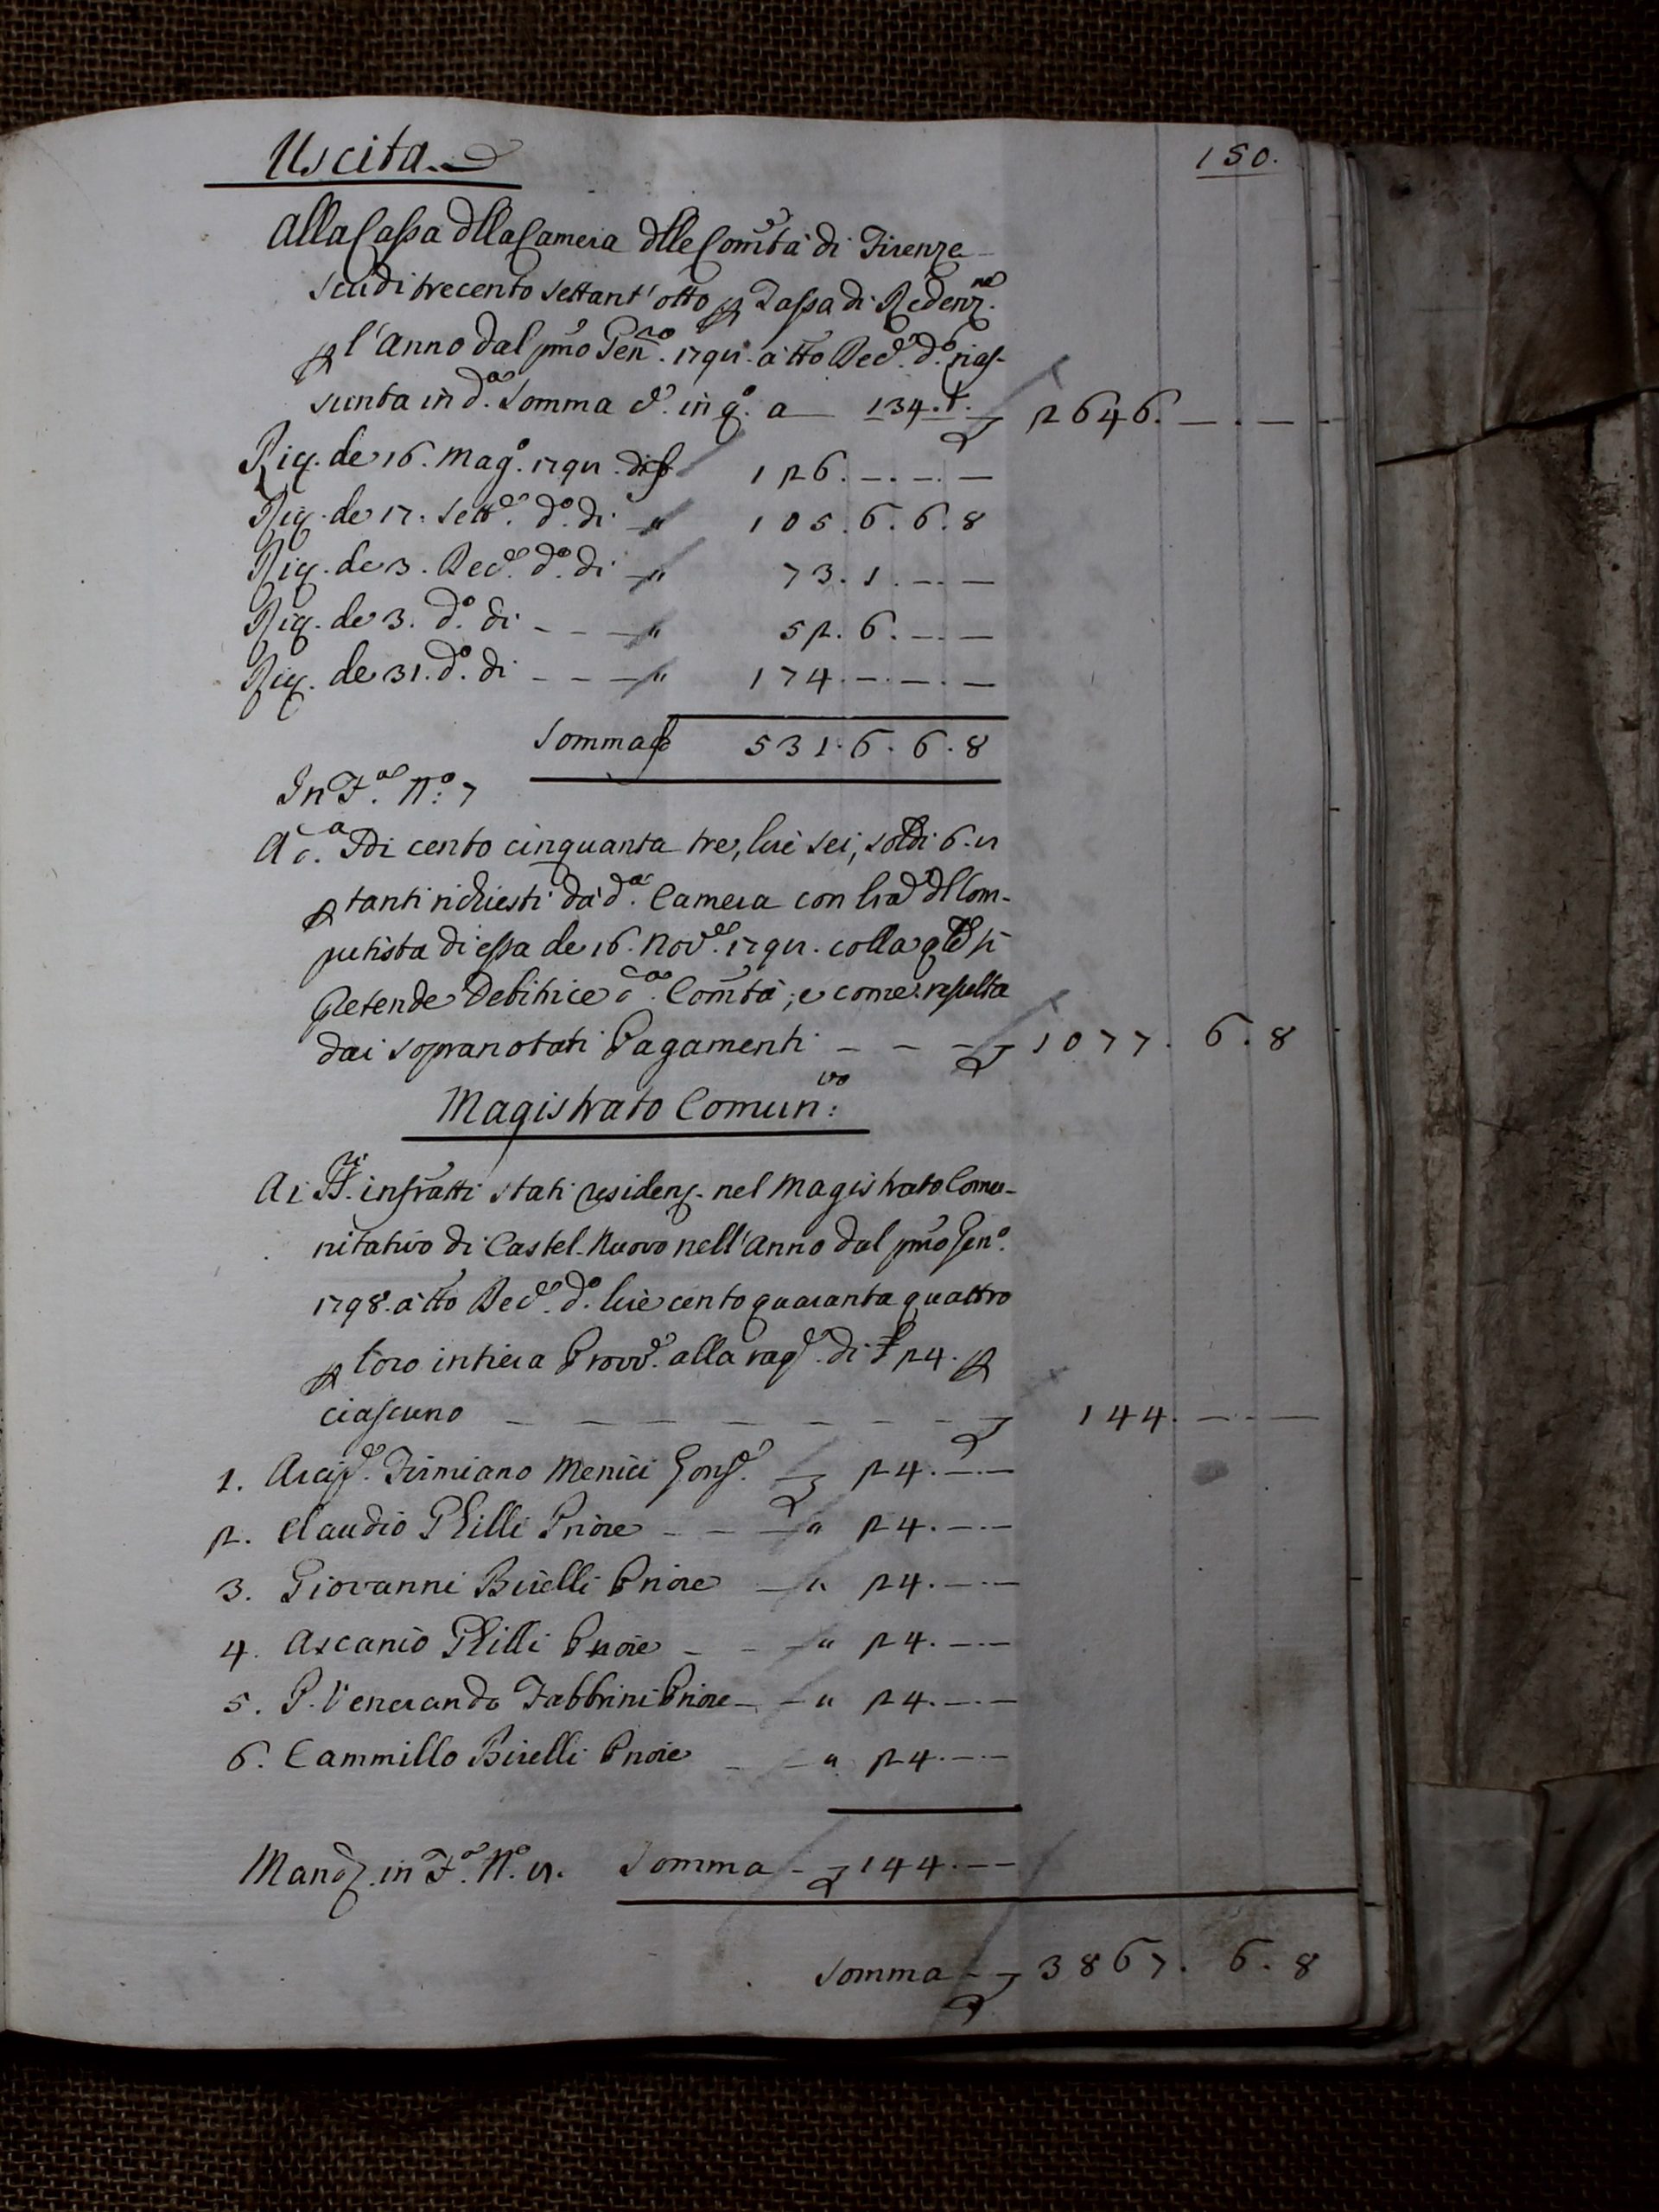 Uscita.
150.
Alla Cassa dlla Camera dlle Com̃tà di Firenze
scudi trecento settant'otto p Tassa di Redenz.ne
p l'Anno dal p̃mo Genn.ro 1798. a tto Dec.e d.o rias-
sunta in d.a Somma in q.o a 134.t. 2646. — . — -
Ric. de 16. Mag.o 1798. di 126. —. —. —
Ric. de 17. Sett.e d.o di " 105. 6. 6. 8
Ric. de 3. Dec.e d.o di " 73. 1. —. —
Ric. de 3. d.o di - - - " 52. 6. —. —
Ric. de 31. d.o di - - - " 174. —. —. —
Somma 531. 6. 6. 8
In F.a N.o 7
A d.a di cento cinquanta tre, lire sei, soldi 6. 8
p tanti richiesti da d.a Camera con dl Com-
putista di essa de 16. Nov.e 1798. colla si
Pretende Debitrice d.a Com̃tà; e come resulta
dai sopranotati Pagamenti - - - 1077. 6. 8
Magistrato Comun.vo
Ai infr̃atti stati residenz. nel Magistrato Comu-
nitativo di Castel-Nuovo nell'Anno dal p̃mo Genn.o
1798. a tto Dec.e d.o lire cento quaranta quattro
p loro intiera Provv.e alla rag.e di £ 24. p
ciascuno - - - - - - - - 144. — . —
1. Firmiano Menici Gonf.e — 24. —.—
2. Claudio Ghilli Priore - - - " 24. —.—
3. Giovanni Birelli Priore — " 24. —.—
4. Ascanio Ghilli Priore - - - " 24. —.—
5. P. Venerando Fabbrini Priore - - " 24. —.—
6. Cammillo Birelli Priore - - " 24. —.—
Mand. in F.a N.o 8. Somma - 144. ——
Somma - 3867. 6. 8